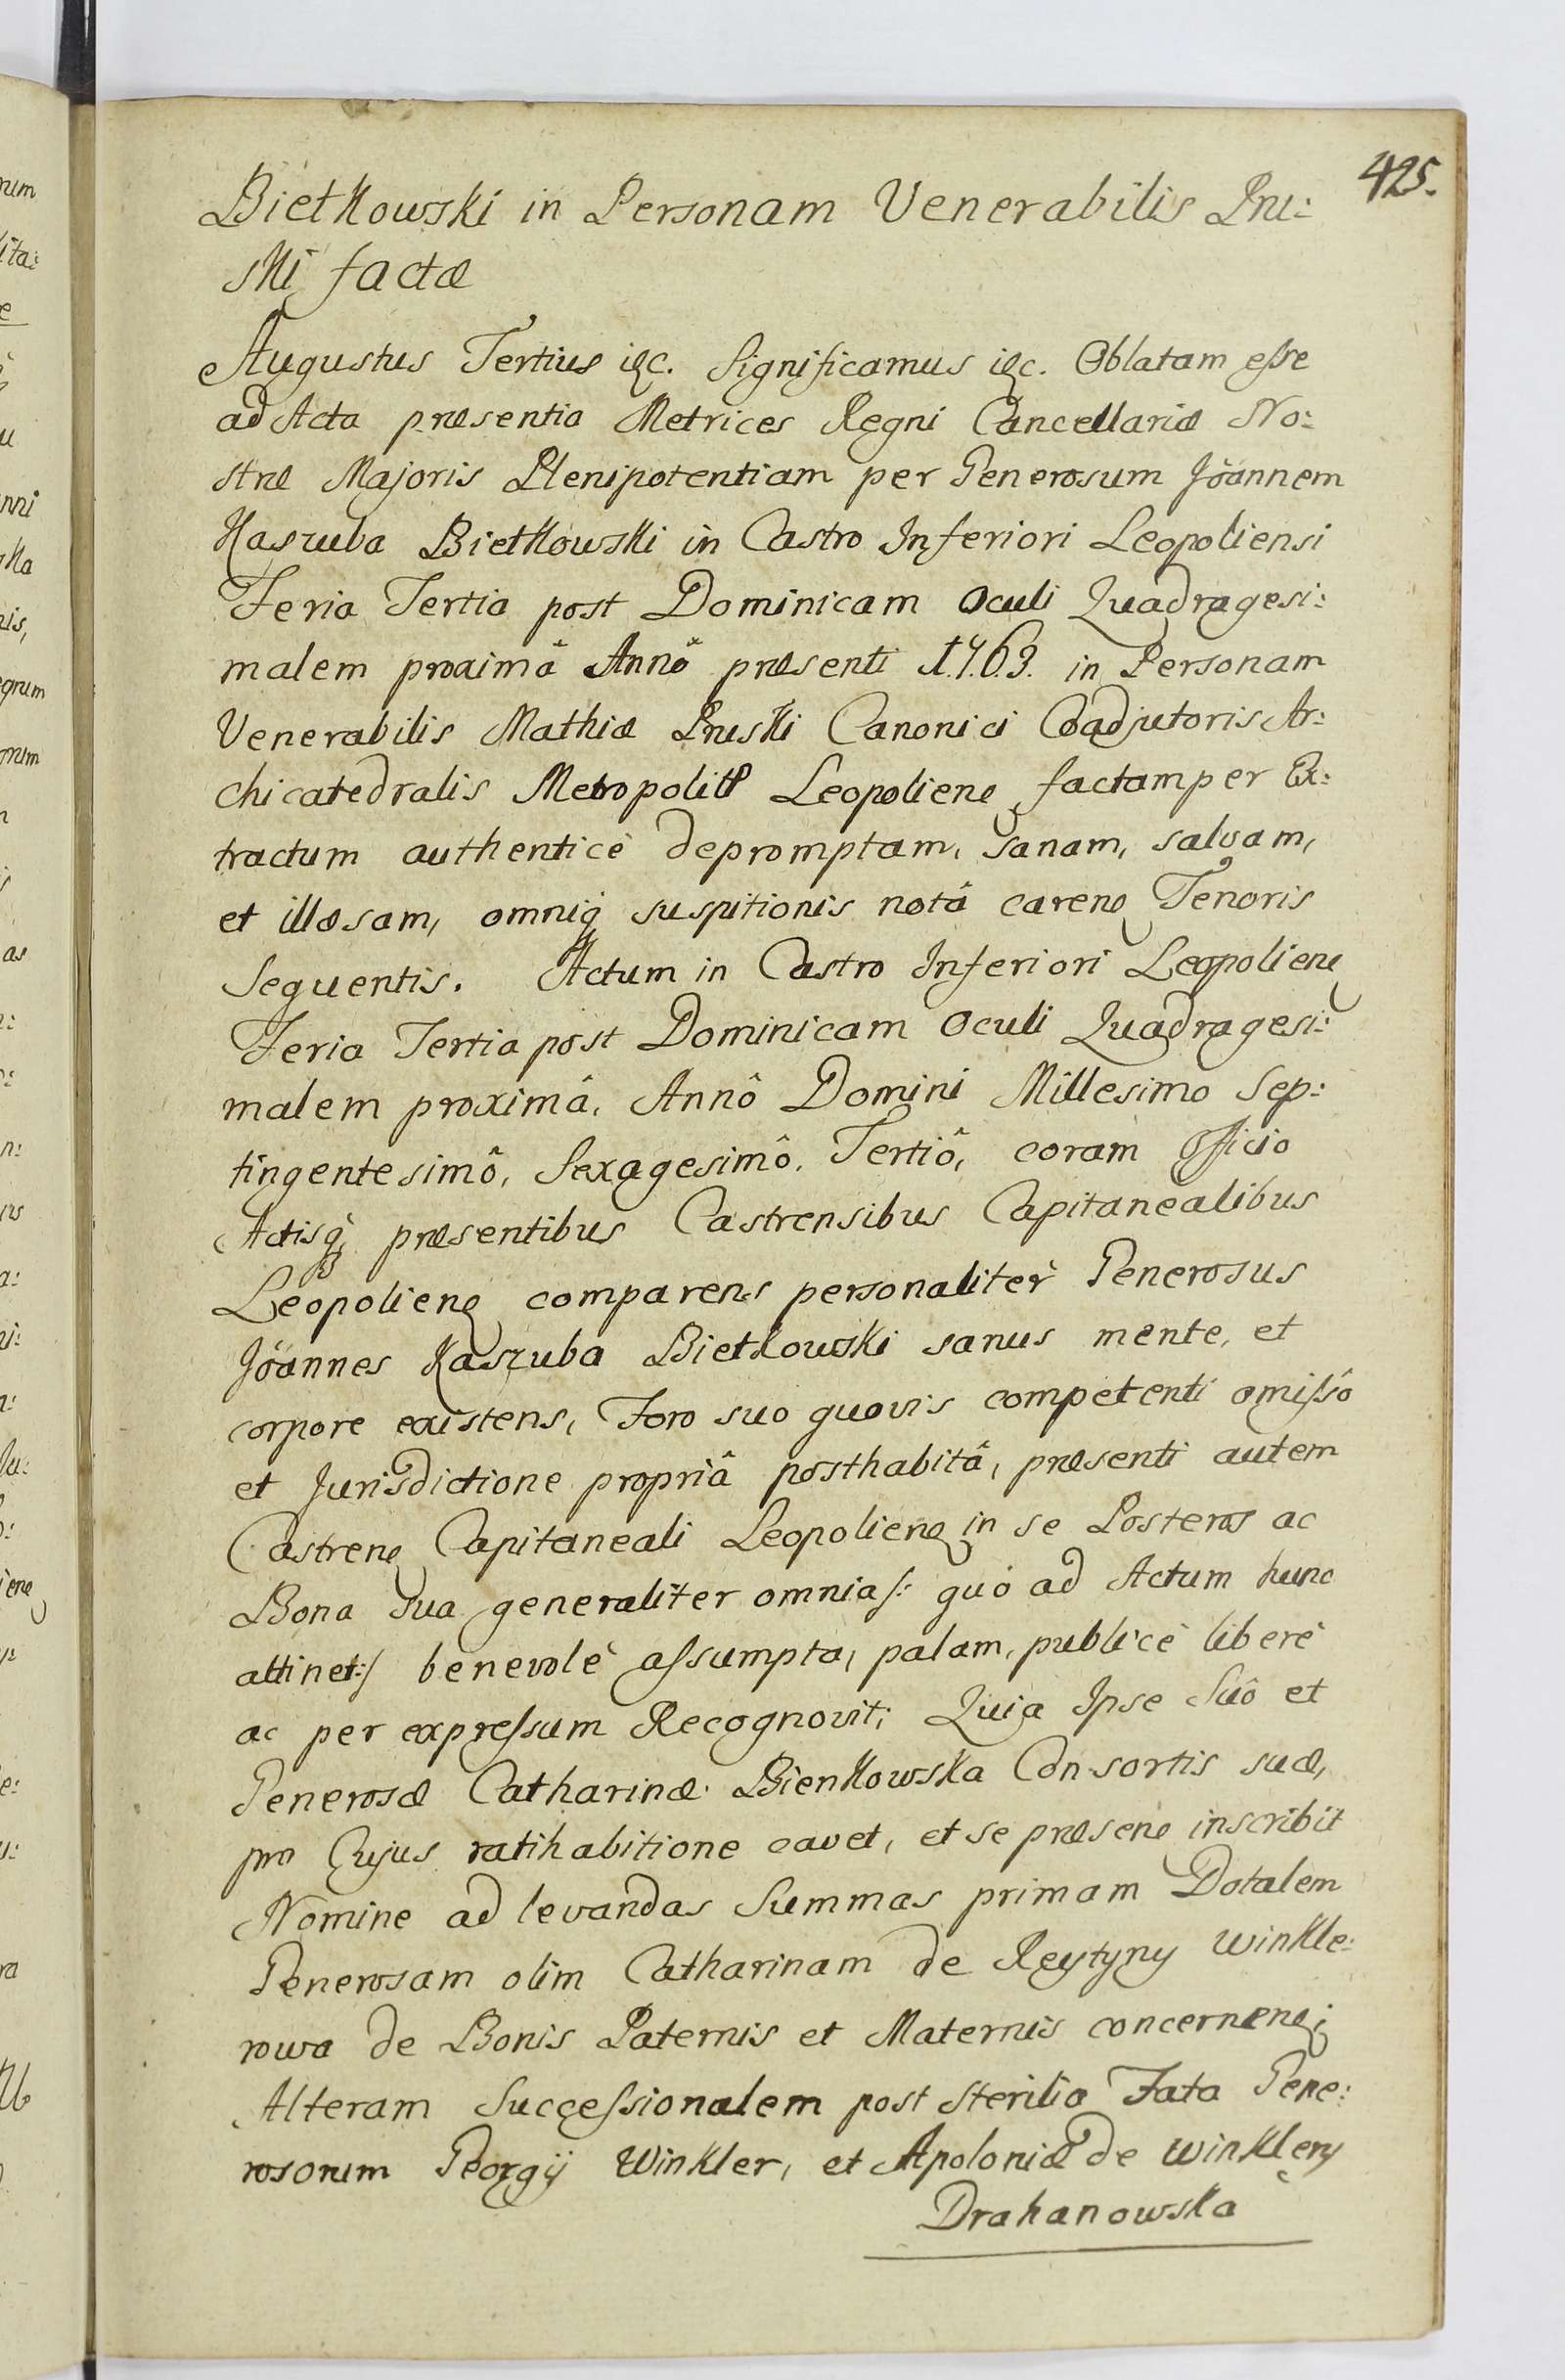 425.
Bietkowski in Personam Venerabilis Pru:
ski factæ
Augustus Tertius &c. Significamus &c. Oblatam esse
ad Acta præsentia Metrices Regni Cancellariæ No:
stræ Majoris Plenipotentiam per Generosum Jôannem
Kaszuba Bietkowski in Castro Inferiori Leopoliensi
Feria Tertia post Dominicam Oculi Quadragesi:
malem proximâ Annô præsenti 1763. in Personam
Venerabilis Mathiæ Pruski Canonici Coadjutoris Ar:
chicatedralis Metropolit Leopolien factam per Ex:
tractum authenticè depromptam, sanam, salvam,
et illæsam, omniq suspitionis notâ caren Tenoris
Sequentis. Actum in Castro Inferiori Leopolien
Feria Tertia post Dominicam Oculi Quadragesi:
malem proximâ, Annô Domini Millesimo Sep:
tingentesimô, Sexagesimô, Tertiô, coram Officio
Actisq præsentibus Castrensibus Capitanealibus
Leopolien comparens personaliter Generosus
Jôannes Kaszuba Bietkowski sanus mente, et
corpore existens, Foro suo quovis competenti omissô
et Jurisdictione propriâ posthabitâ, præsenti autem
Castren Capitaneali Leopolien in se Posteros ac
Bona sua generaliter omnia /: quò ad Actum hunc
attinet :/ benevolè assumpta, palam, publicè liberè
ac per expressum Recognovit; Quia Ipse Suô et
Generosæ Catharinæ Bienkowska Consortis suæ,
pro Cujus ratihabitione cavet, et se præsen inscribit
Nomine ad levandas Summas primam Dotalem
Generosam olim Catharinam de Reytyny Winkle:
rowa de Bonis Paternis et Maternis concernen;
Alteram Successionalem post sterilia Fata Gene:
rosorum Georgij Winkler, et Apoloniæ de Winklery
Drahanowska